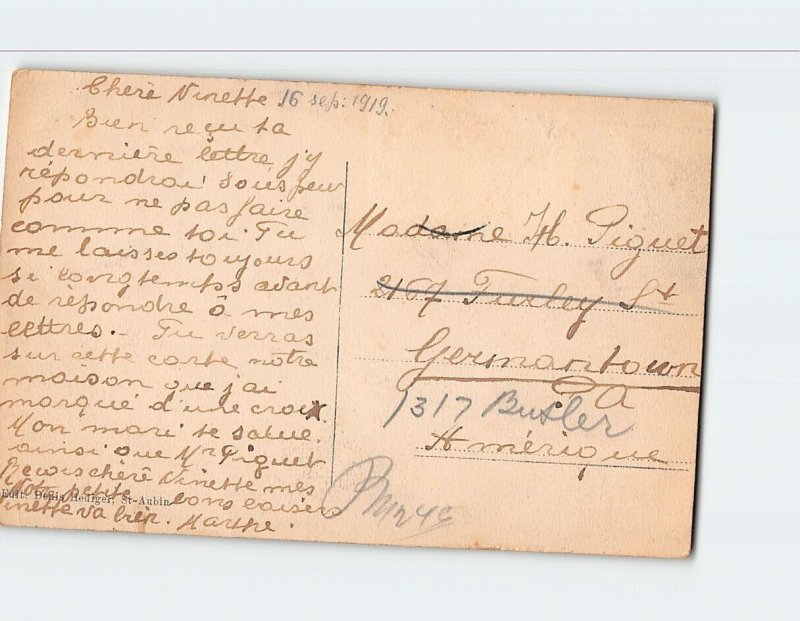 Chère Ninette 16 sep: 1919.
Bien reçu ta
dernière lettre j'y
répondrai sous peu
pour ne pas faire
comme toi. Tu
me laisses toujours
si longtemps avant
de répondre à mes
lettres. Tu verras
sur cette carte notre
maison que j'ai
marqué d'une croix
Mon mari te salue.
ainsi que Mr Piguet
Reçois chère Ninette mes
bons baisers
Notre petite
Ninette va bien. Marthe.
Edit. Denis Hediger, St-Aubin
Madame H. Piguet
2167 Furley St
Germantown
Pa
1317 Butler
Amérique